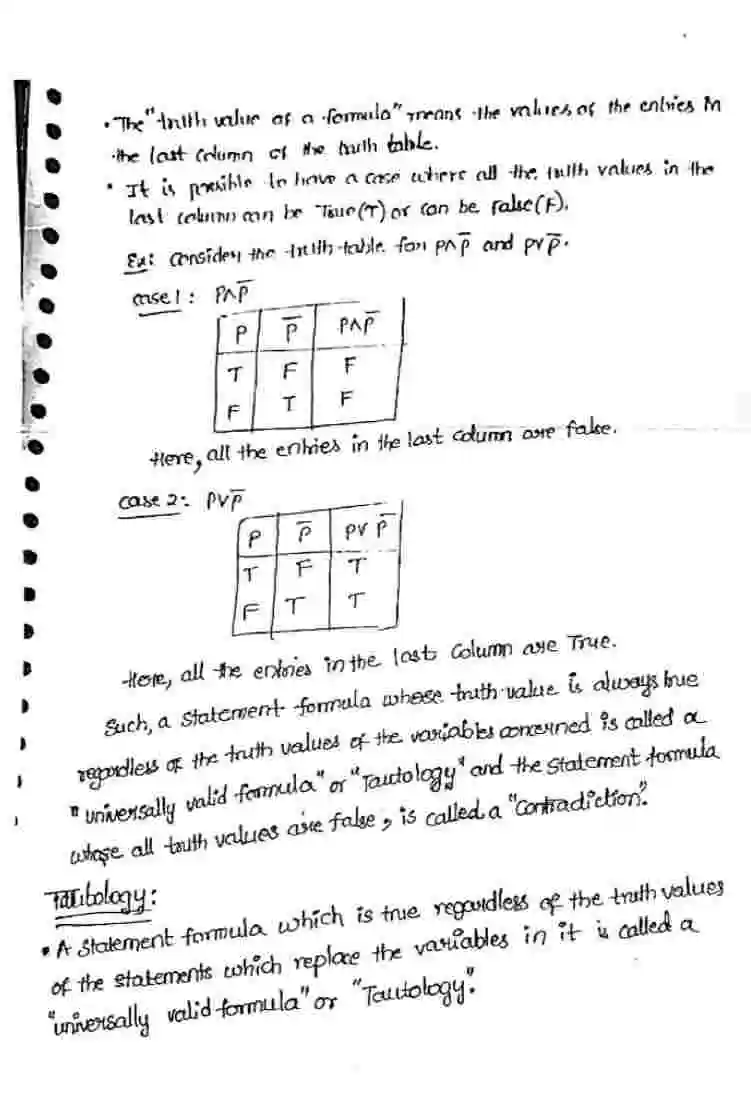 • The "truth value of a formula" means the values of the entries in
the last column of the truth table.
• It is possible to have a case where all the truth values in the
last column can be True(T) or can be False(F).
Ex: Consider the truth table for P∧P̅ and P∨P̅.
case 1: P∧P̅
P P̅ P∧P̅
T F F
F T F
Here, all the entries in the last column are false.
case 2: P∨P̅
P P̅ P∨P̅
T F T
F T T
Here, all the entries in the last column are True.
Such, a statement formula whose truth value is always true
regardless of the truth values of the variables concerned is called a
"universally valid formula" or "Tautology" and the statement formula
whose all truth values are false, is called a "Contradiction".
Tautology:
• A statement formula which is true regardless of the truth values
of the statements which replace the variables in it is called a
"universally valid formula" or "Tautology".